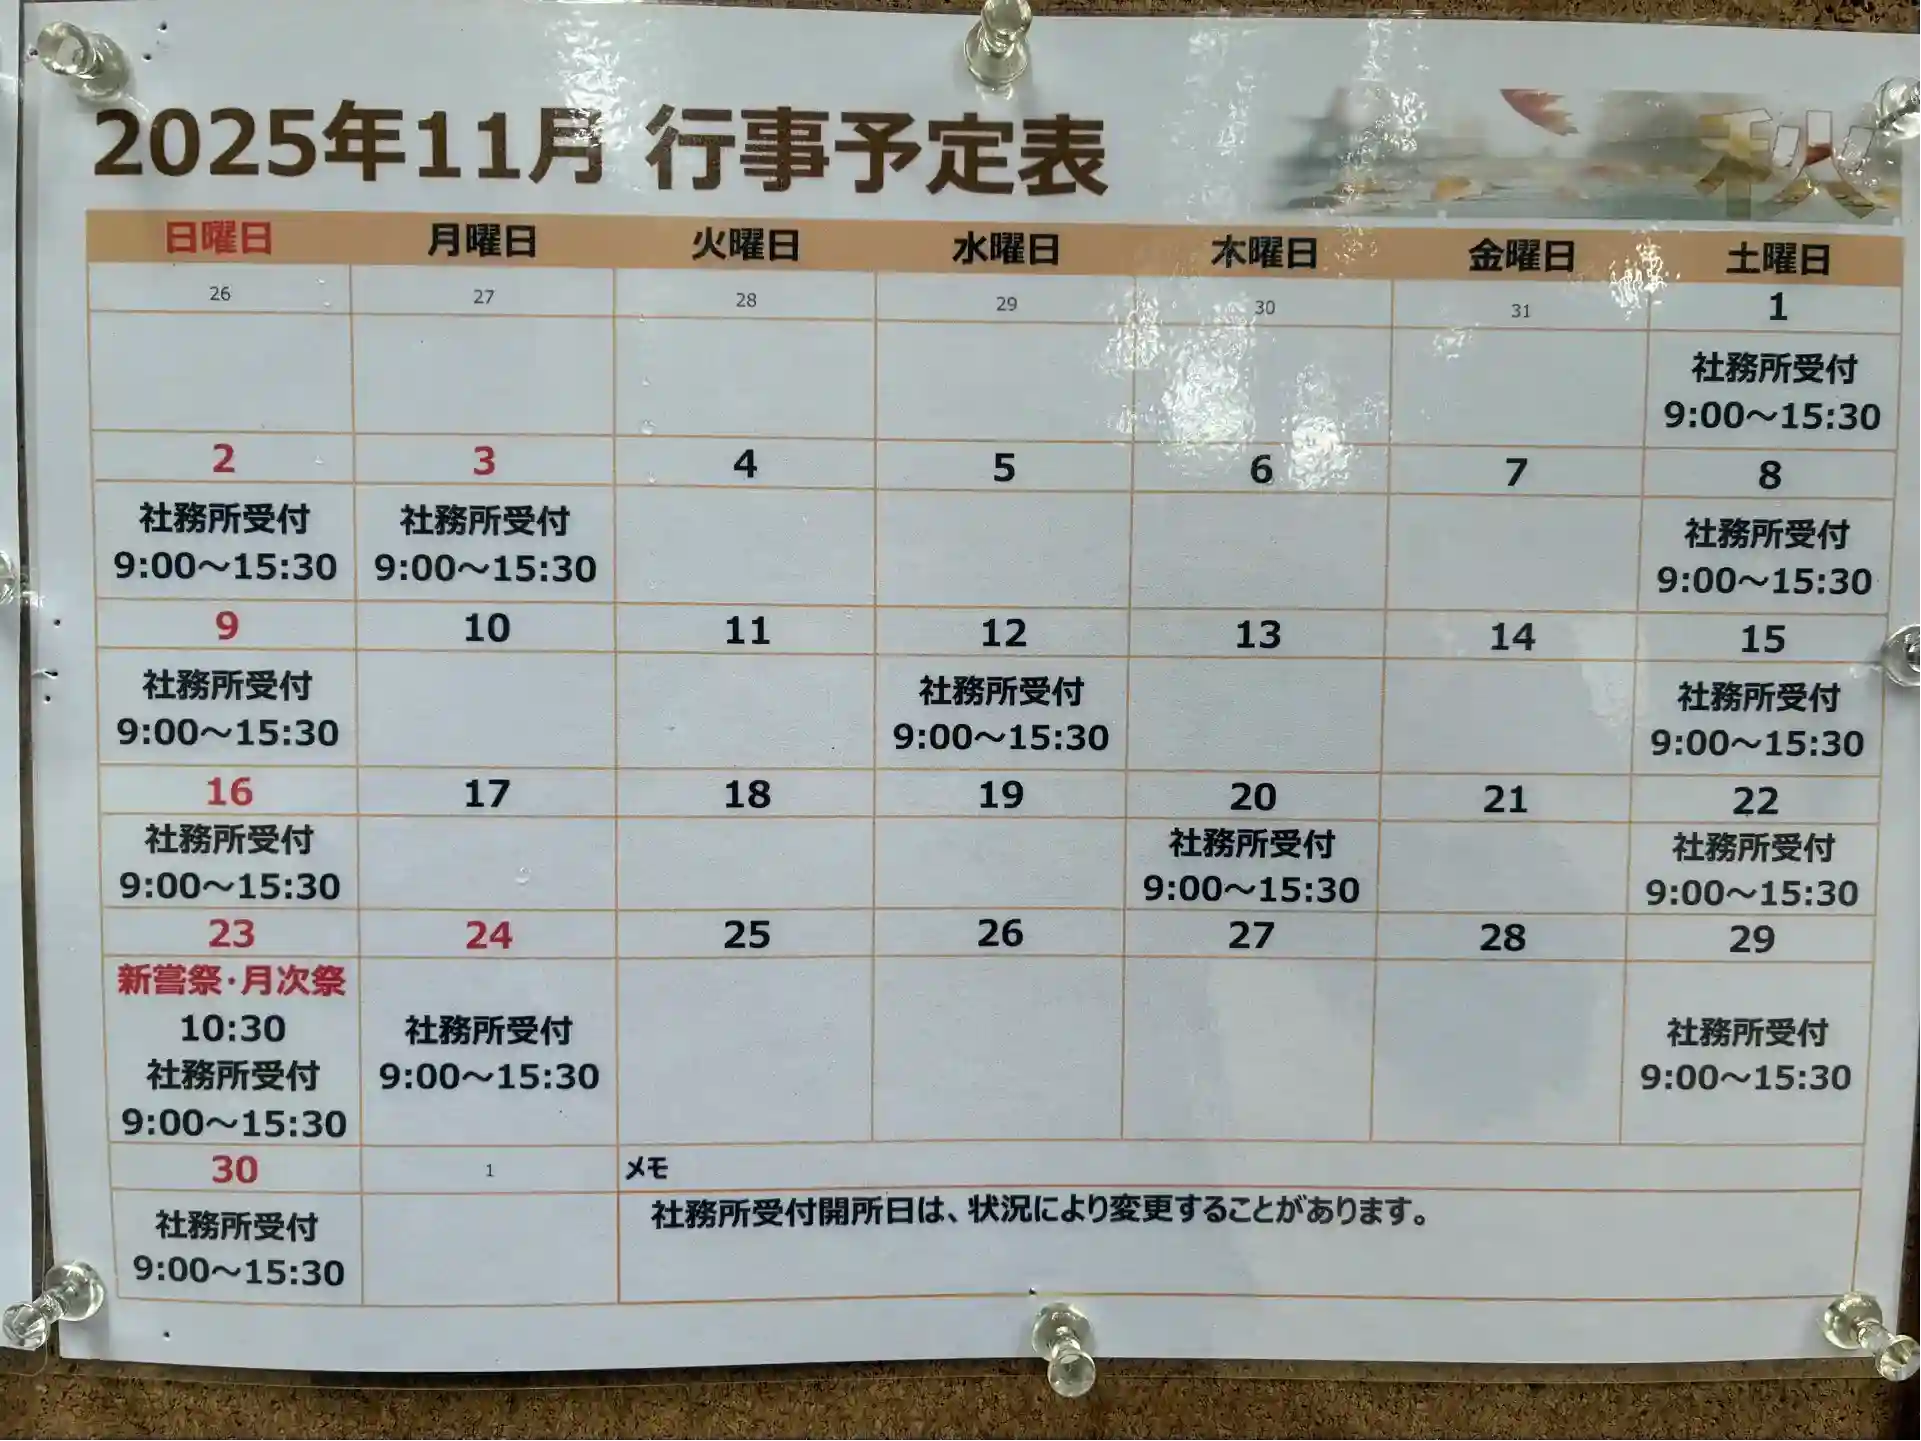 2025年11月 行事予定表
秋
日曜日 月曜日 火曜日 水曜日 木曜日 金曜日 土曜日
26 27 28 29 30 31 1
社務所受付
9:00～15:30
2 3 4 5 6 7 8
社務所受付 社務所受付 社務所受付
9:00～15:30 9:00～15:30 9:00～15:30
9 10 11 12 13 14 15
社務所受付 社務所受付 社務所受付
9:00～15:30 9:00～15:30 9:00～15:30
16 17 18 19 20 21 22
社務所受付 社務所受付 社務所受付
9:00～15:30 9:00～15:30 9:00～15:30
23 24 25 26 27 28 29
新嘗祭・月次祭
10:30
社務所受付 社務所受付 社務所受付
9:00～15:30 9:00～15:30 9:00～15:30
30 1 メモ
社務所受付 社務所受付開所日は、状況により変更することがあります。
9:00～15:30